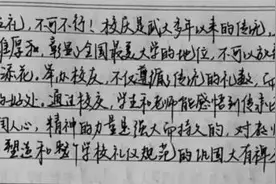 礼，不可不行！校庆是武大多年以来的传统，
厚和，彰显了全国最美大学的地位，不可以放
添花。举办校庆，不仅遵循了传统的礼数，
好处。通过校庆，学生和老师能感悟到传承
人心，精神的力量是强大而持久的，对
塑造和整个学校礼仪规范的巩固大有裨